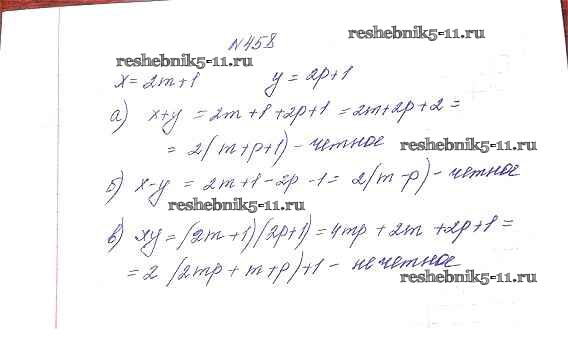 №458
reshebnik5-11.ru
reshebnik5-11.ru
x = 2m+1 y = 2p+1
а) x+y = 2m+1+2p+1 = 2m+2p+2 =
= 2(m+p+1) - четное
reshebnik5-11.ru
б) x-y = 2m+1-2p-1 = 2(m-p) - четное
reshebnik5-11.ru
в) xy = (2m+1)(2p+1) = 4mp+2m+2p+1 =
= 2(2mp+m+p)+1 - нечетное
reshebnik5-11.ru